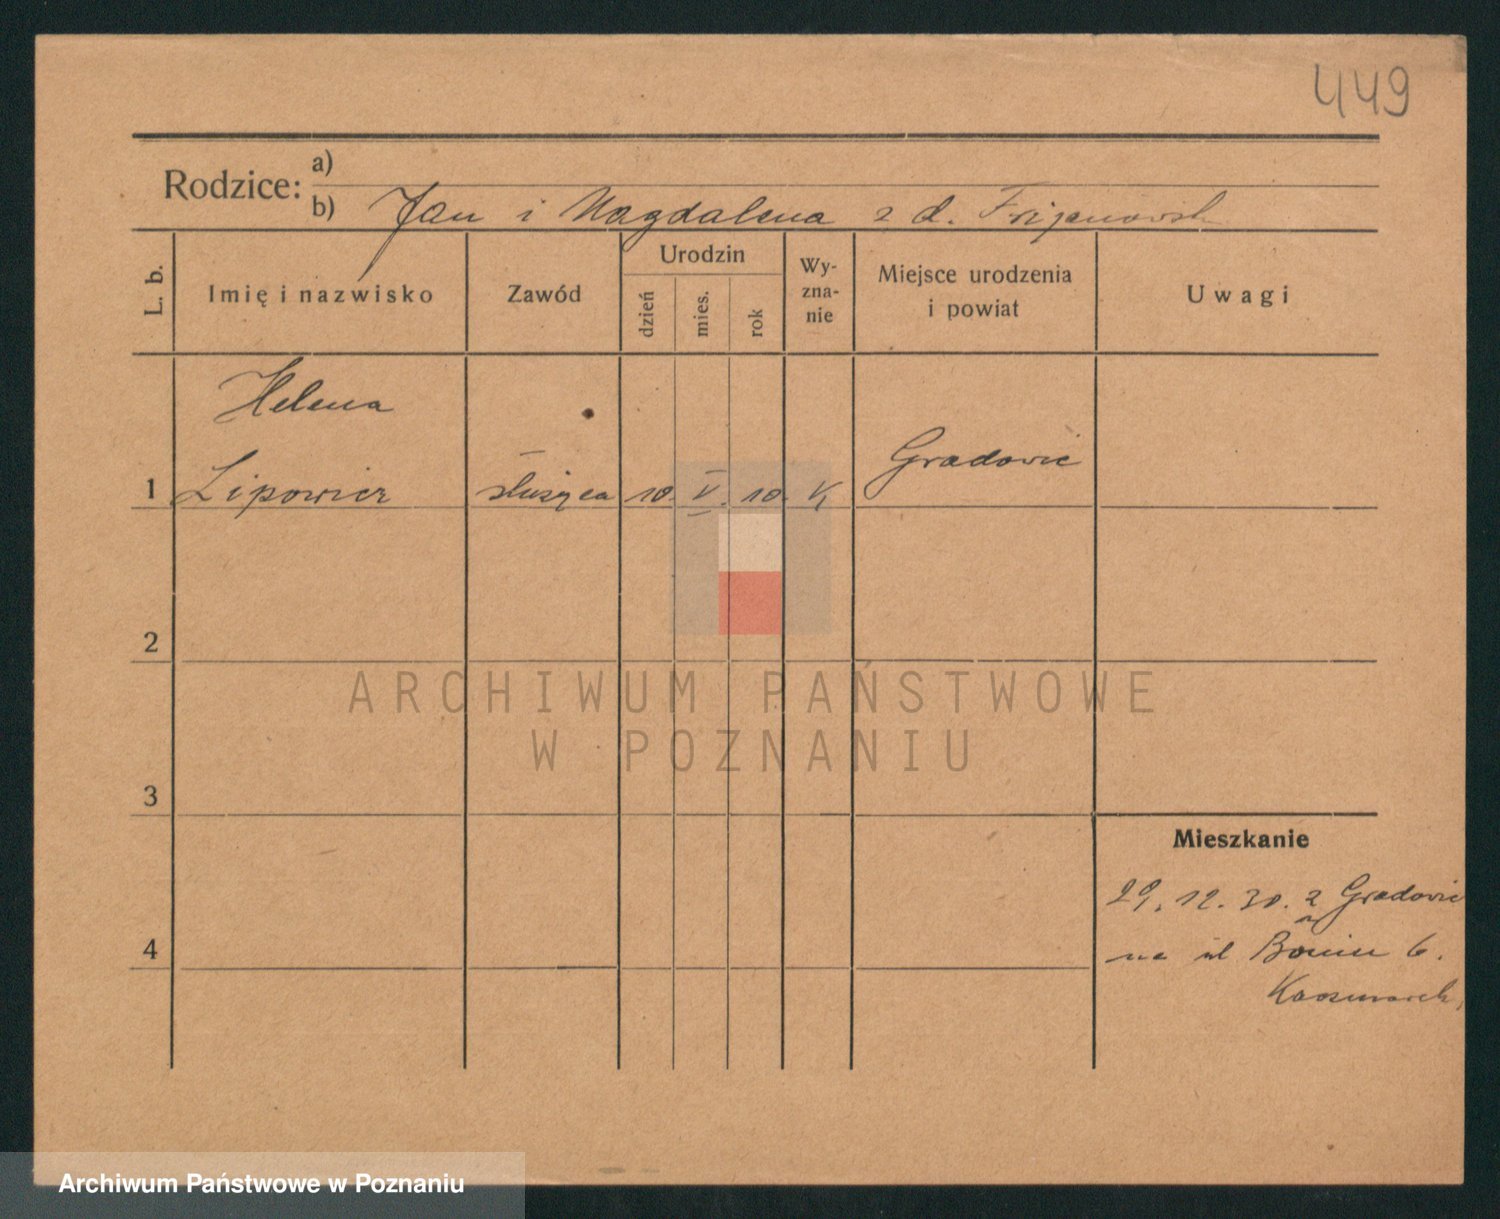 449
Rodzice:
a)
b) Jan i Magdalena z d.
L. b.
Imię i nazwisko
Zawód
Urodzin
dzień
mies.
rok
Wy-
zna-
nie
Miejsce urodzenia
i powiat
Uwagi
Helena
1 Lipowicz służąca 10. V. 10. K Gradowic
2
3
4
Mieszkanie
29. 12. 30. z Gradowic
na ul 6.
ARCHIWUM PAŃSTWOWE
W POZNANIU
Archiwum Państwowe w Poznaniu